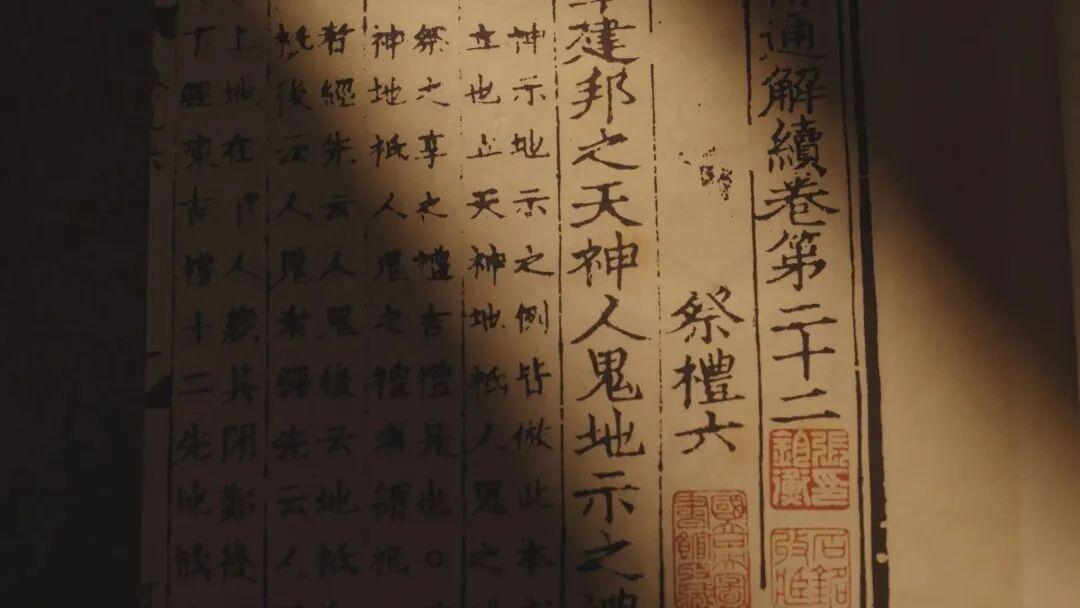 通解續卷第二十二
張印
鈞衡
石銘
收藏
祭禮六
建邦之天神人鬼地示之
神示地示之例皆倣此本
立也立天神地祇人鬼之
祭之享之禮吉禮是也○
神地祇人鬼之禮者謂祀
者經先云人鬼後云地祇
祇後云人鬼者經先云人
上地在下人藏其間鄭後
下經吉禮十二先地祇